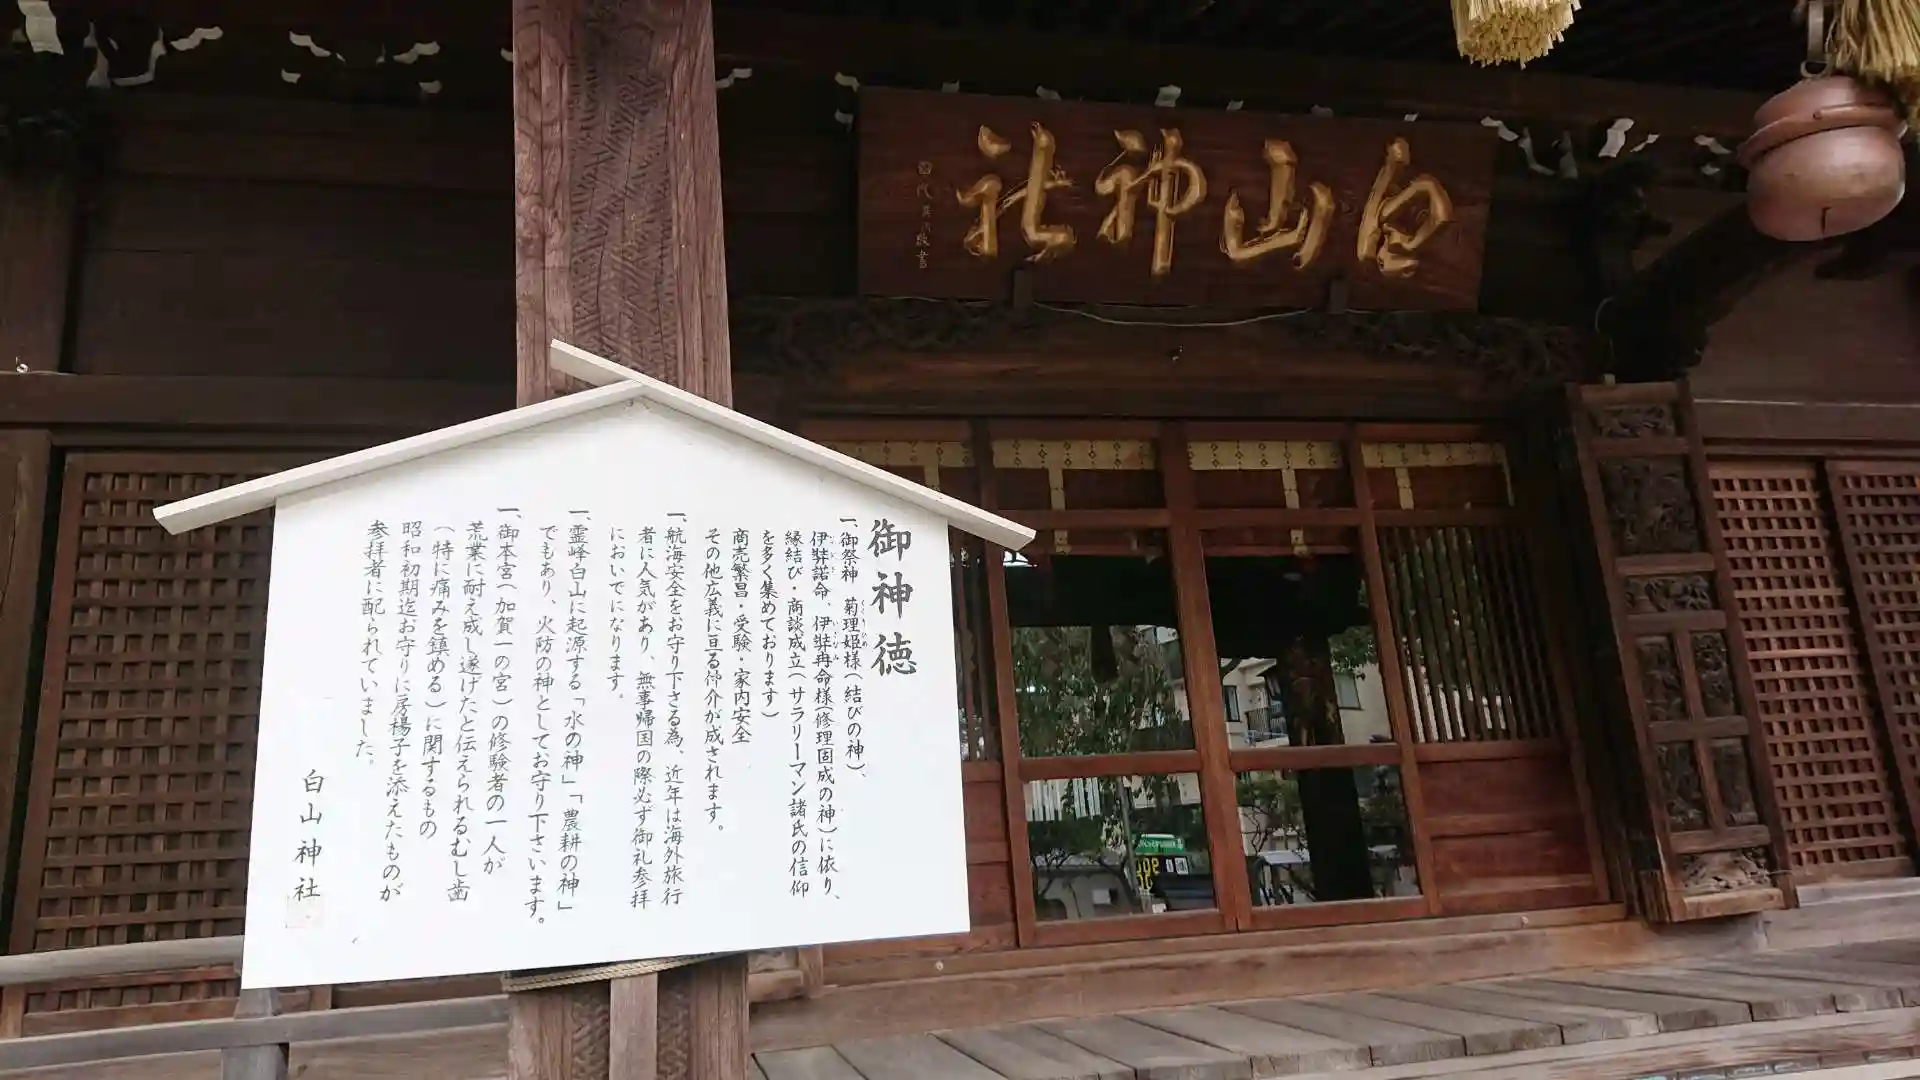 白山神社
御神徳
一、御祭神 菊理姫様(結びの神)、
伊弉諾命、伊弉冉命様(修理固成の神)に依り、
縁結び・商談成立(サラリーマン諸氏の信仰
を多く集めております)
商売繁昌・受験・家内安全
その他広義に亘る仲介が成されます。
一、航海安全をお守り下さる為、近年は海外旅行
者に人気があり、無事帰国の際必ず御礼参拝
においでになります。
一、霊峰白山に起源する「水の神」「農耕の神」
でもあり、火防の神としてお守り下さいます。
一、御本宮(加賀一の宮)の修験者の一人が
荒業に耐え成し遂げたと伝えられるむし歯
(特に痛みを鎮める)に関するもの
昭和初期迄お守りに房楊子を添えたものが
参拝者に配られていました。
白山神社